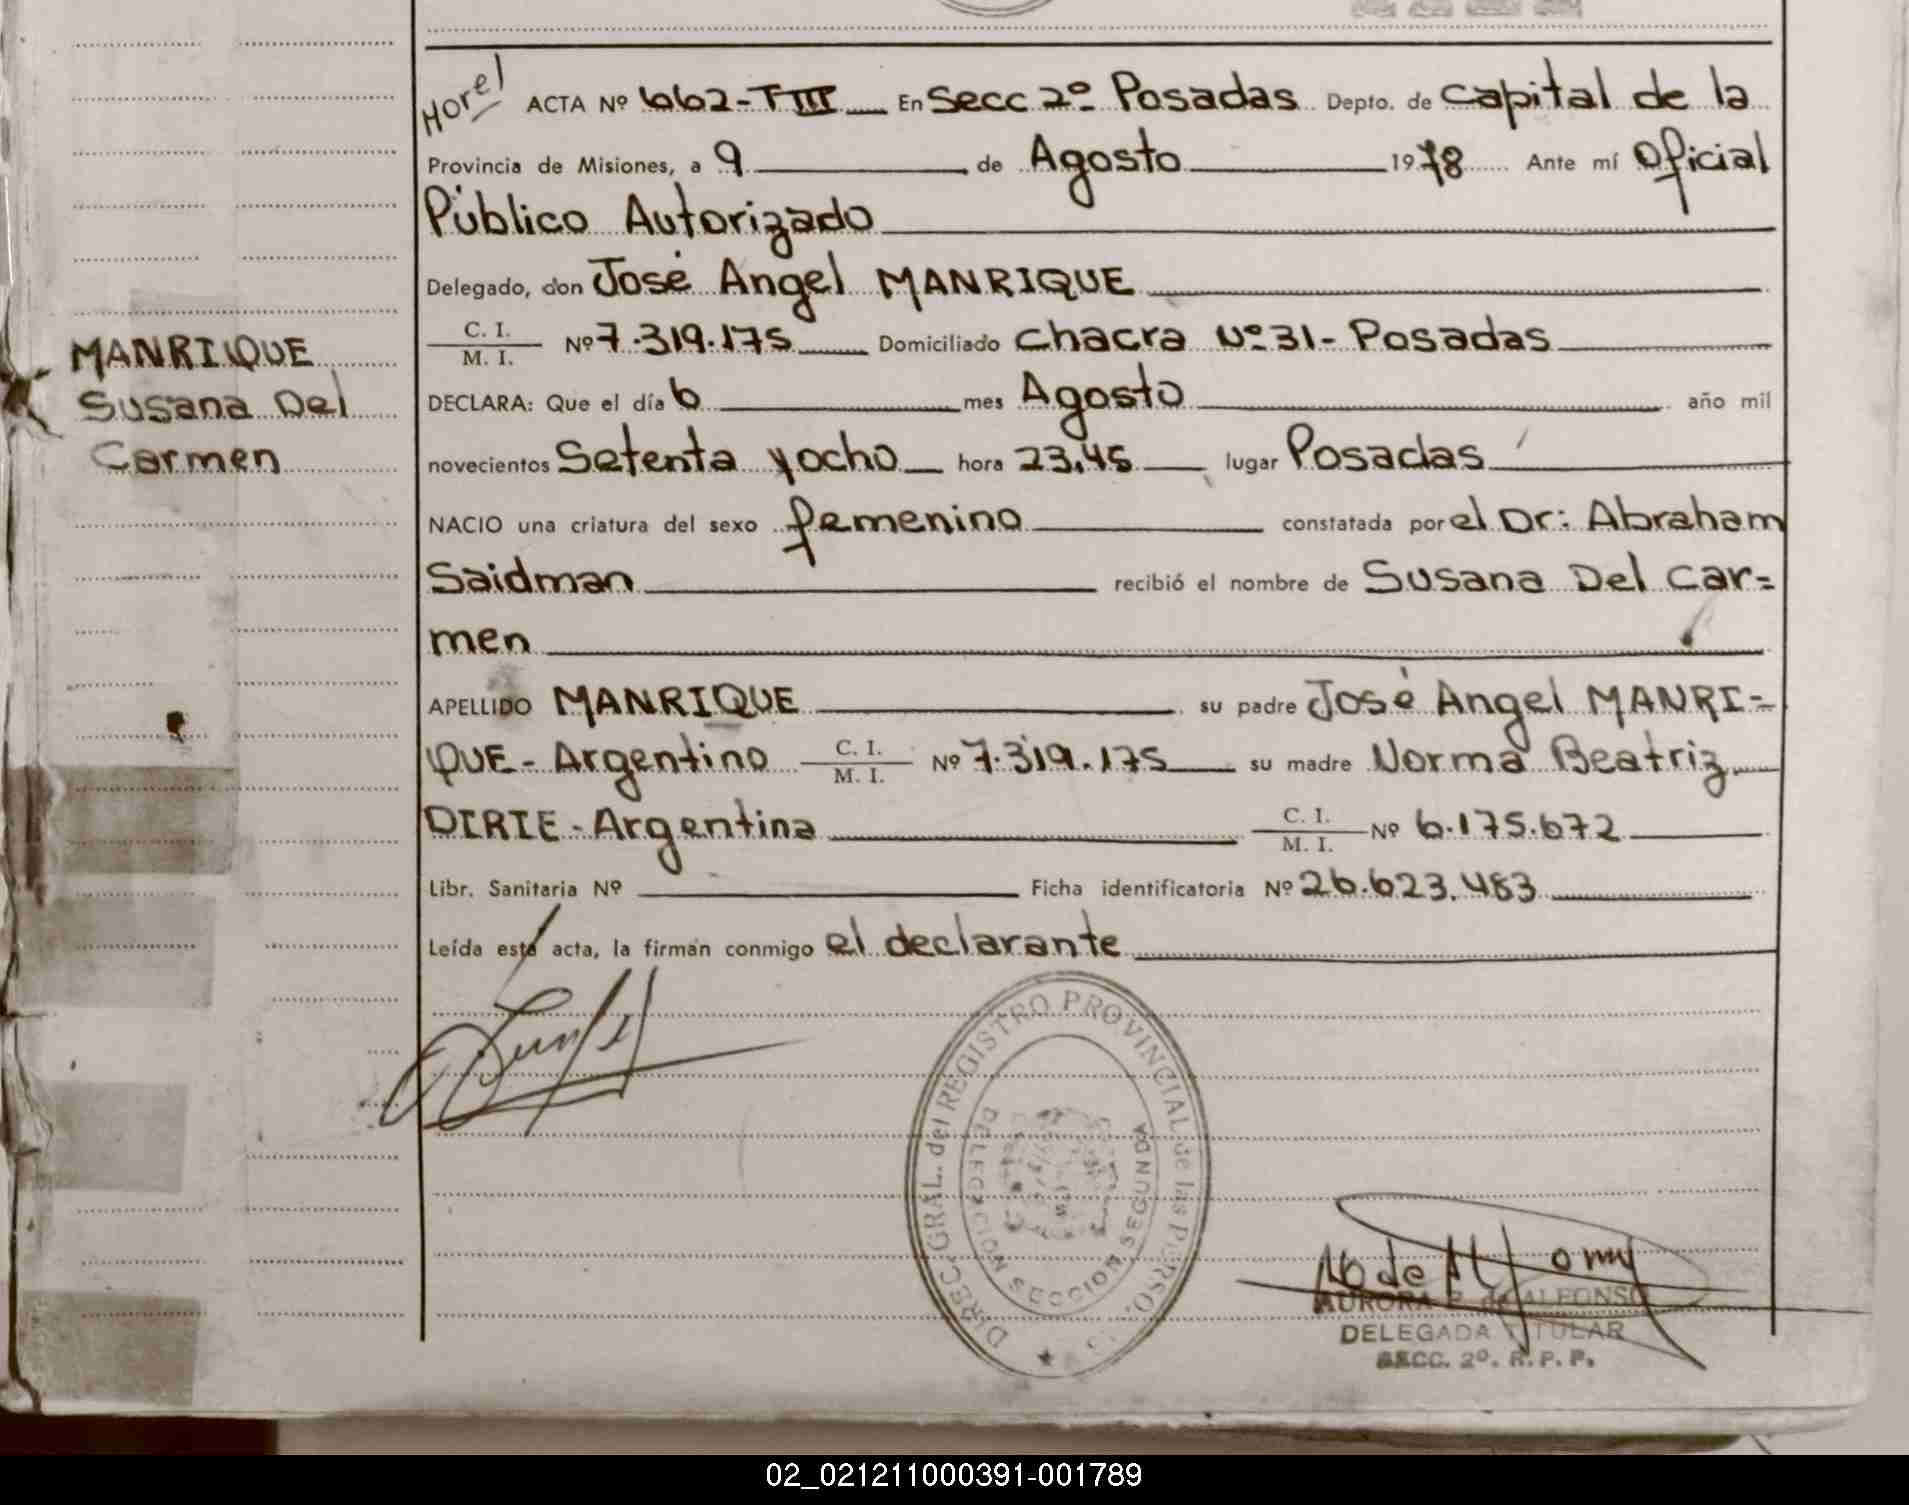 ACTA Nº 662-TIII En Secc 2º Posadas Depto. de Capital de la
Provincia de Misiones, a 9 de Agosto 1978 Ante mí Oficial
Público Autorizado
Delegado, don José Angel MANRIQUE
C. I.
M. I.
Nº 7.319.175 Domiciliado Chacra Nº 31- Posadas
MANRIQUE
Susana Del
Carmen
DECLARA: Que el día 6 mes Agosto año mil
novecientos Setenta y ocho hora 23,45 lugar Posadas
NACIO una criatura del sexo femenino constatada por el Dr: Abraham
Saidman recibió el nombre de Susana Del Car=
men
APELLIDO MANRIQUE su padre José Angel MANRI=
QUE - Argentino C. I. M. I. Nº 7.319.175 su madre Norma Beatriz
DIRIE - Argentina C. I. M. I. Nº 6.175.672
Libr. Sanitaria Nº Ficha identificatoria Nº 26.623.483
Leída esta acta, la firman conmigo el declarante
DIREC. GRAL. del REGISTRO PROVINCIAL de las PERSO.
DELEGACION SECCION SEGUNDA
AURORA de ALFONSO
DELEGADA TITULAR
SECC. 2º. R. P. P.
02_021211000391-001789